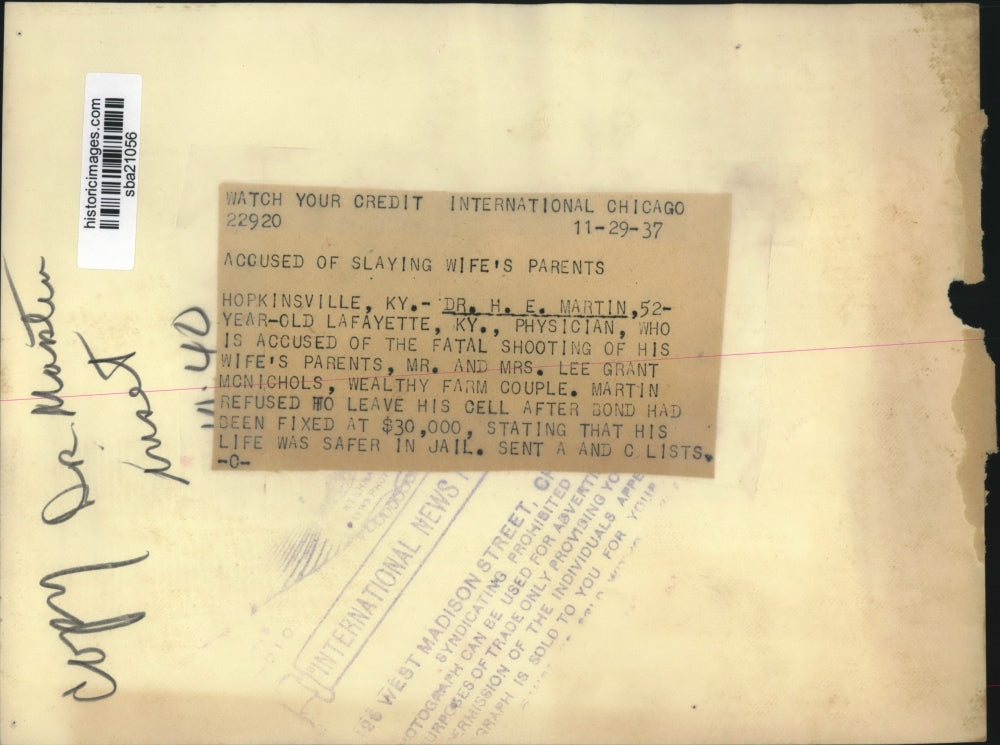 historicimages.com
sba21056
WATCH YOUR CREDIT INTERNATIONAL CHICAGO
22920 11-29-37
ACCUSED OF SLAYING WIFE'S PARENTS
HOPKINSVILLE, KY.- DR. H. E. MARTIN,52-
YEAR-OLD LAFAYETTE, KY., PHYSICIAN, WHO
IS ACCUSED OF THE FATAL SHOOTING OF HIS
WIFE'S PARENTS, MR. AND MRS. LEE GRANT
MCNICHOLS, WEALTHY FARM COUPLE. MARTIN
REFUSED TO LEAVE HIS CELL AFTER BOND HAD
BEEN FIXED AT $30,000, STATING THAT HIS
LIFE WAS SAFER IN JAIL. SENT A AND C LISTS.
-0-
copy Dr. Martin
INTERNATIONAL NEWS
WEST MADISON STREET,
SYNDICATING PROHIBITED
CAN BE USED FOR
OF TRADE ONLY PROVIDING
OF THE INDIVIDUALS
IS SOLD TO YOU FOR YOUR